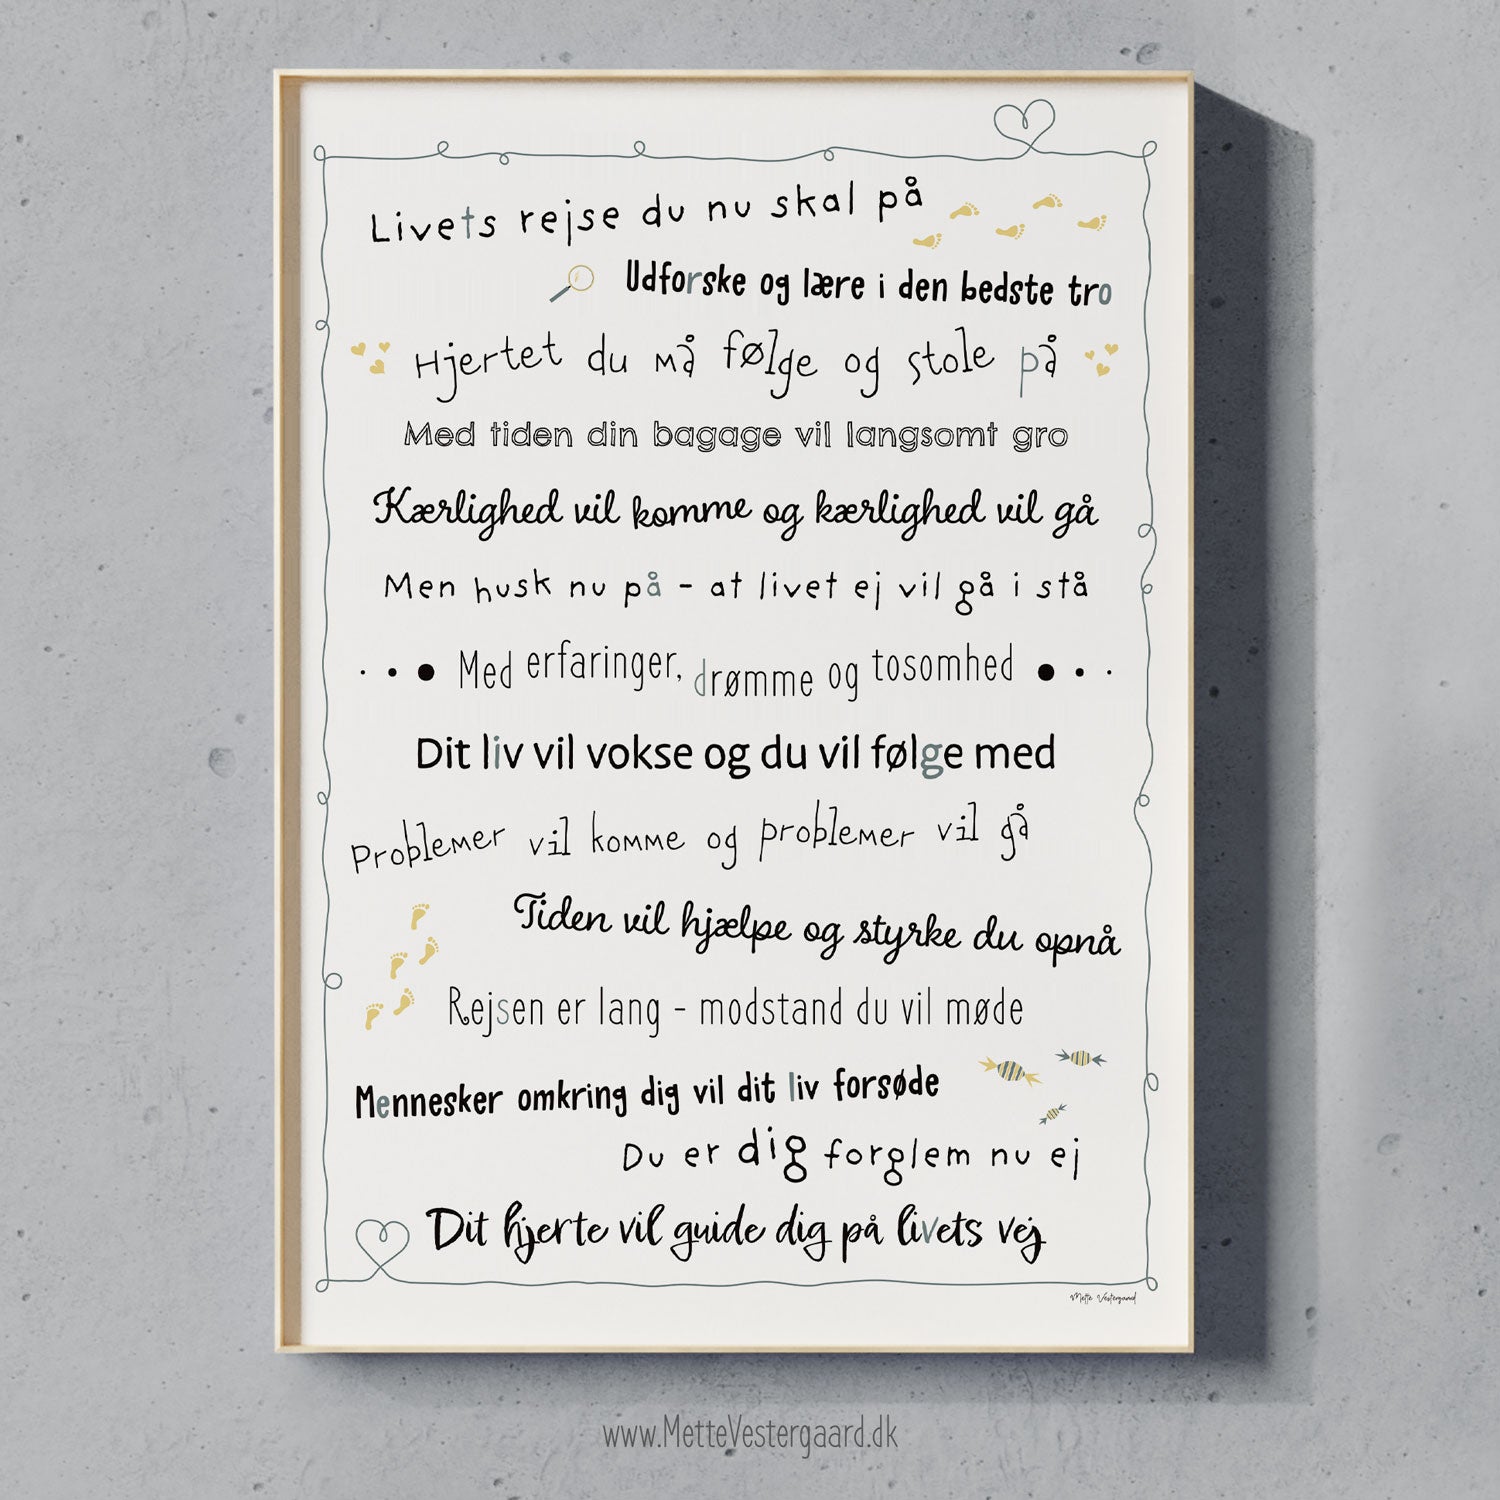 Livets rejse du nu skal på
Udforske og lære i den bedste tro
Hjertet du må følge og stole på
Med tiden din bagage vil langsomt gro
Kærlighed vil komme og kærlighed vil gå
Men husk nu på - at livet ej vil gå i stå
Med erfaringer, drømme og tosomhed
Dit liv vil vokse og du vil følge med
Problemer vil komme og problemer vil gå
Tiden vil hjælpe og styrke du opnå
Rejsen er lang - modstand du vil møde
Mennesker omkring dig vil dit liv forsøde
Du er dig forglem nu ej
Dit hjerte vil guide dig på livets vej
Mette Vestergaard
www.MetteVestergaard.dk